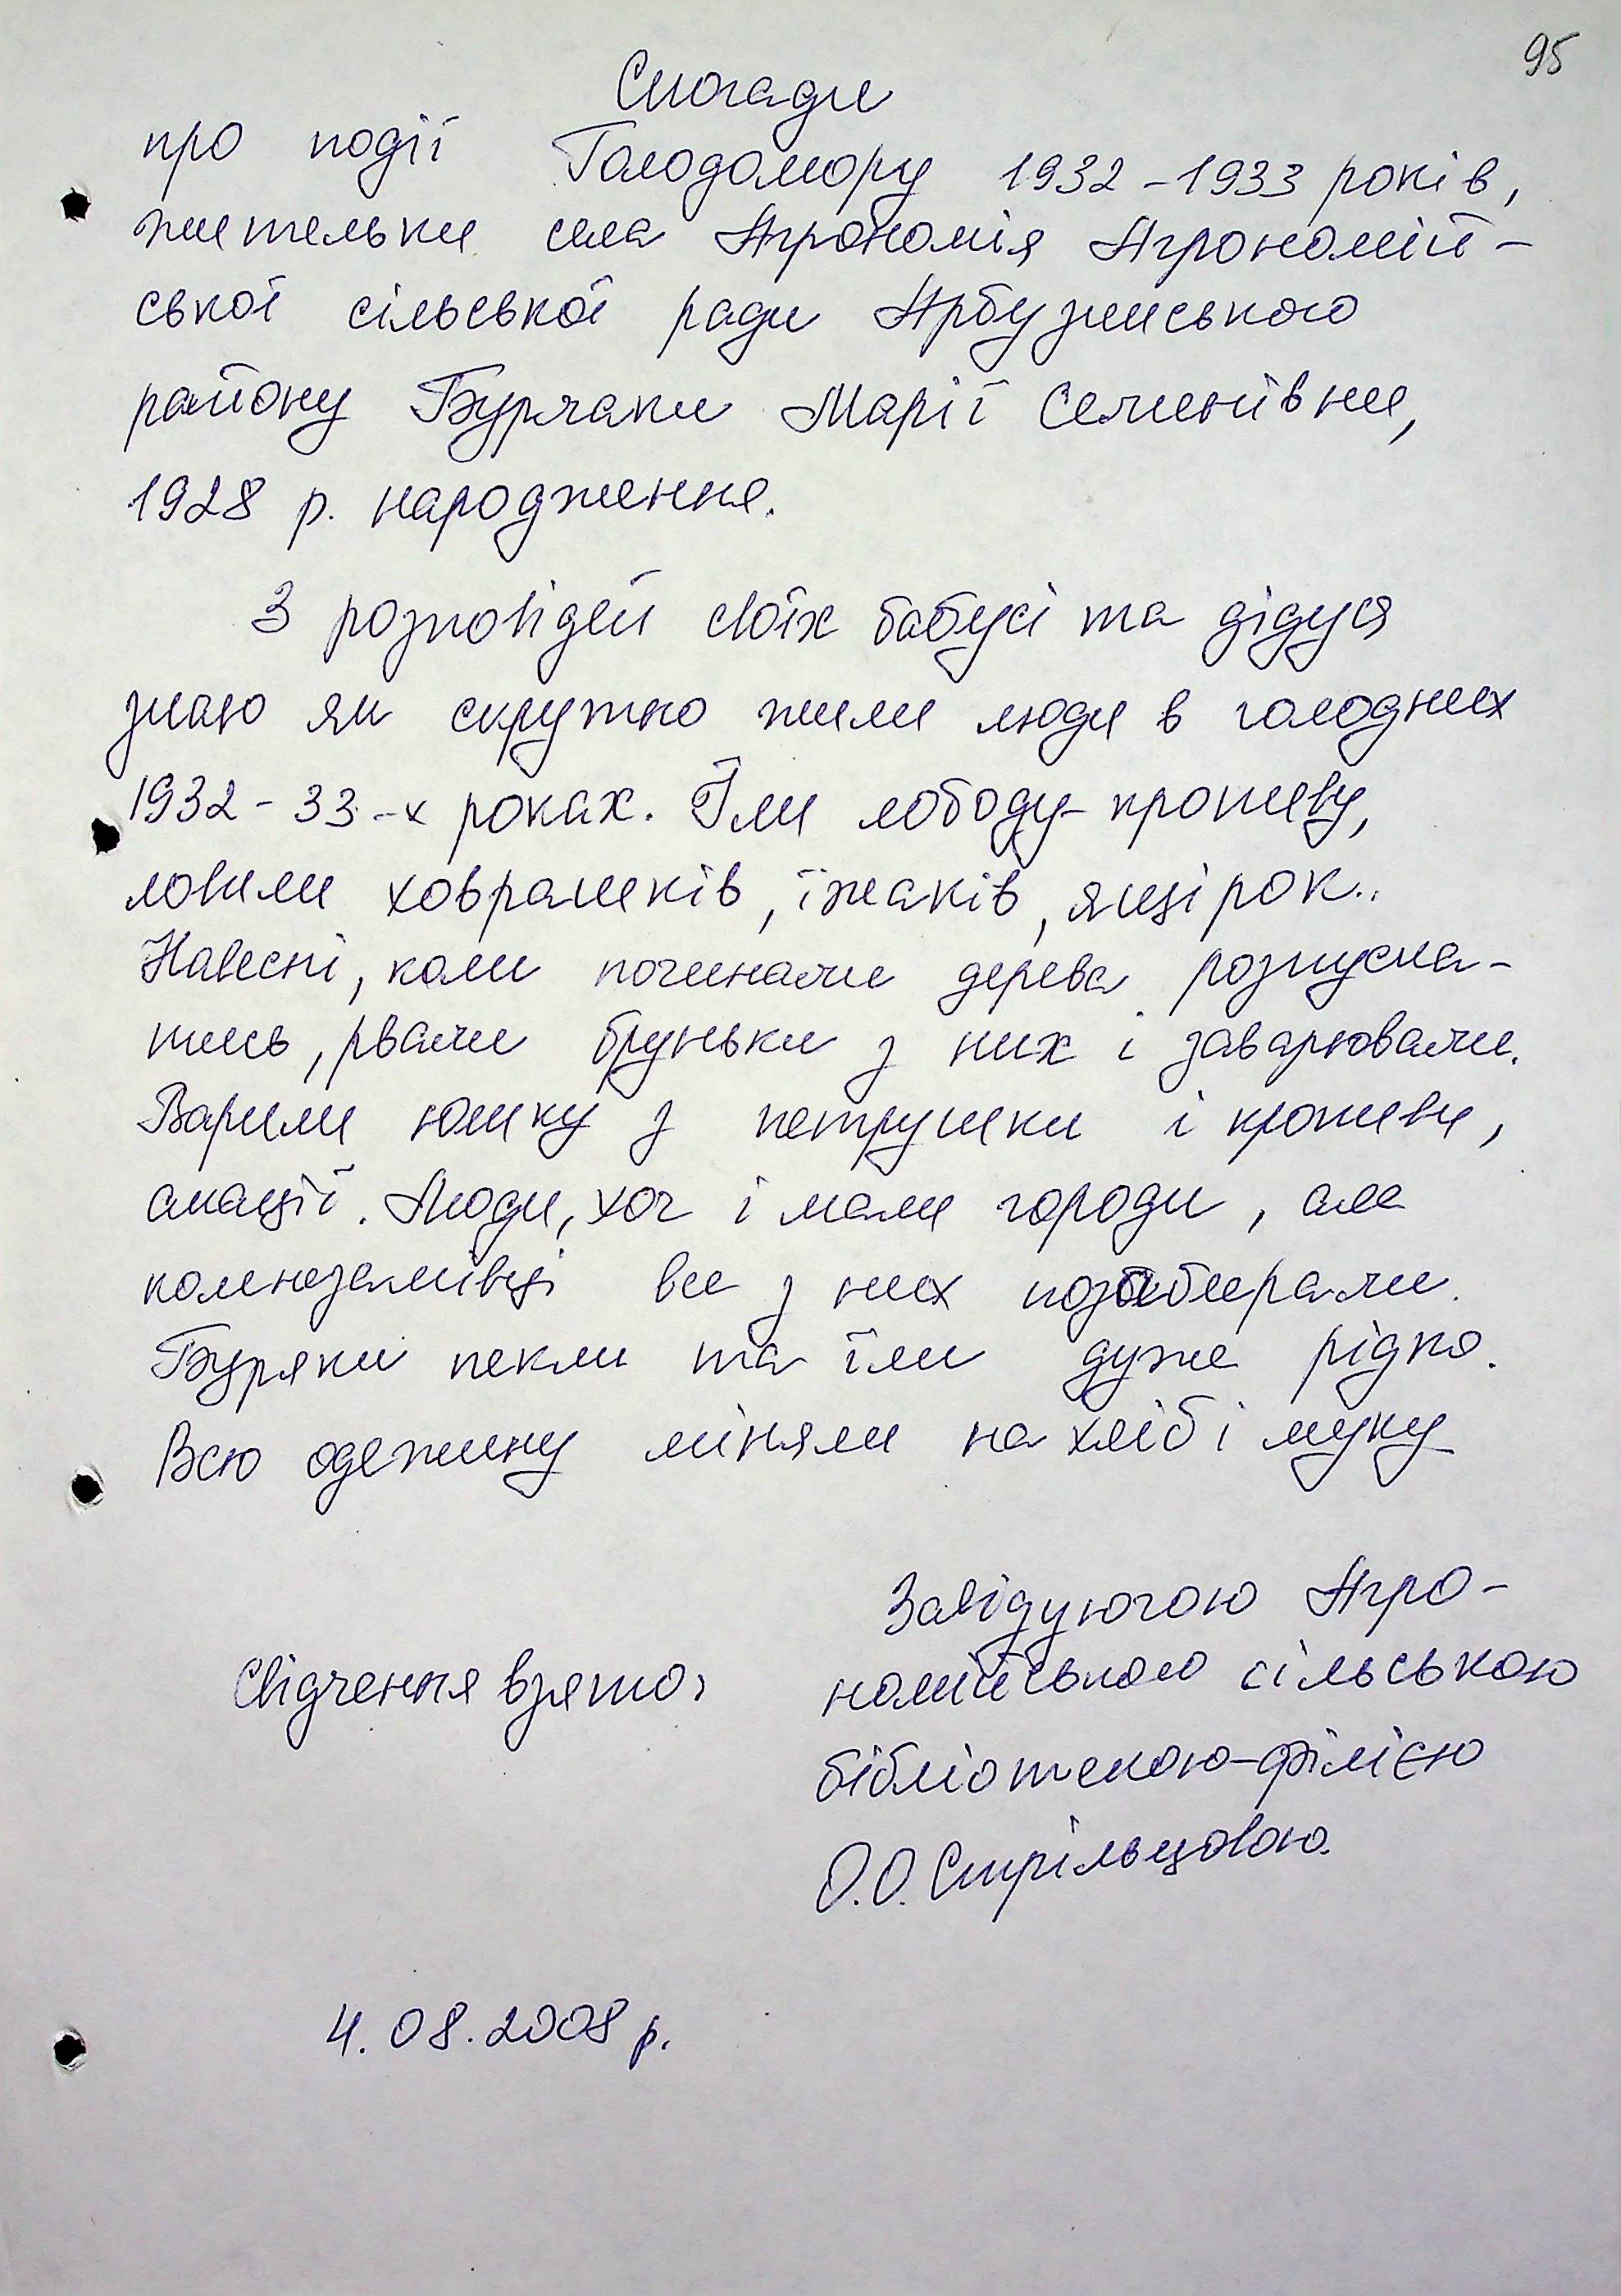 95
Спогади
про події Голодомору 1932-1933 років,
жительки села Агрономія Агрономій-
ської сільської ради Арбузинського
району Бурлаки Марії Семенівни,
1928 р. народження.
З розповідей своїх бабусі та дідуся
знаю як скрутно жили люди в голодних
1932-33-х роках. Їли лободу кропиву,
ловили ховрашків, їжаків, ящірок..
Навесні, коли починали дерева розпуска-
тись, рвали бруньки з них і заварювали.
Варили юшку з петрушки і кропиви,
акації. Люди, хоч і мали городи, але
комнезамівці все з них позабирали.
Буряки пекли та їли дуже рідко.
Всю одежину міняли на хліб і муку
Завідуючою Агро-
Свідчення взято:
номійською сільською
бібліотекою-філією
О.О. Стрільцовою.
4.08.2008 р.